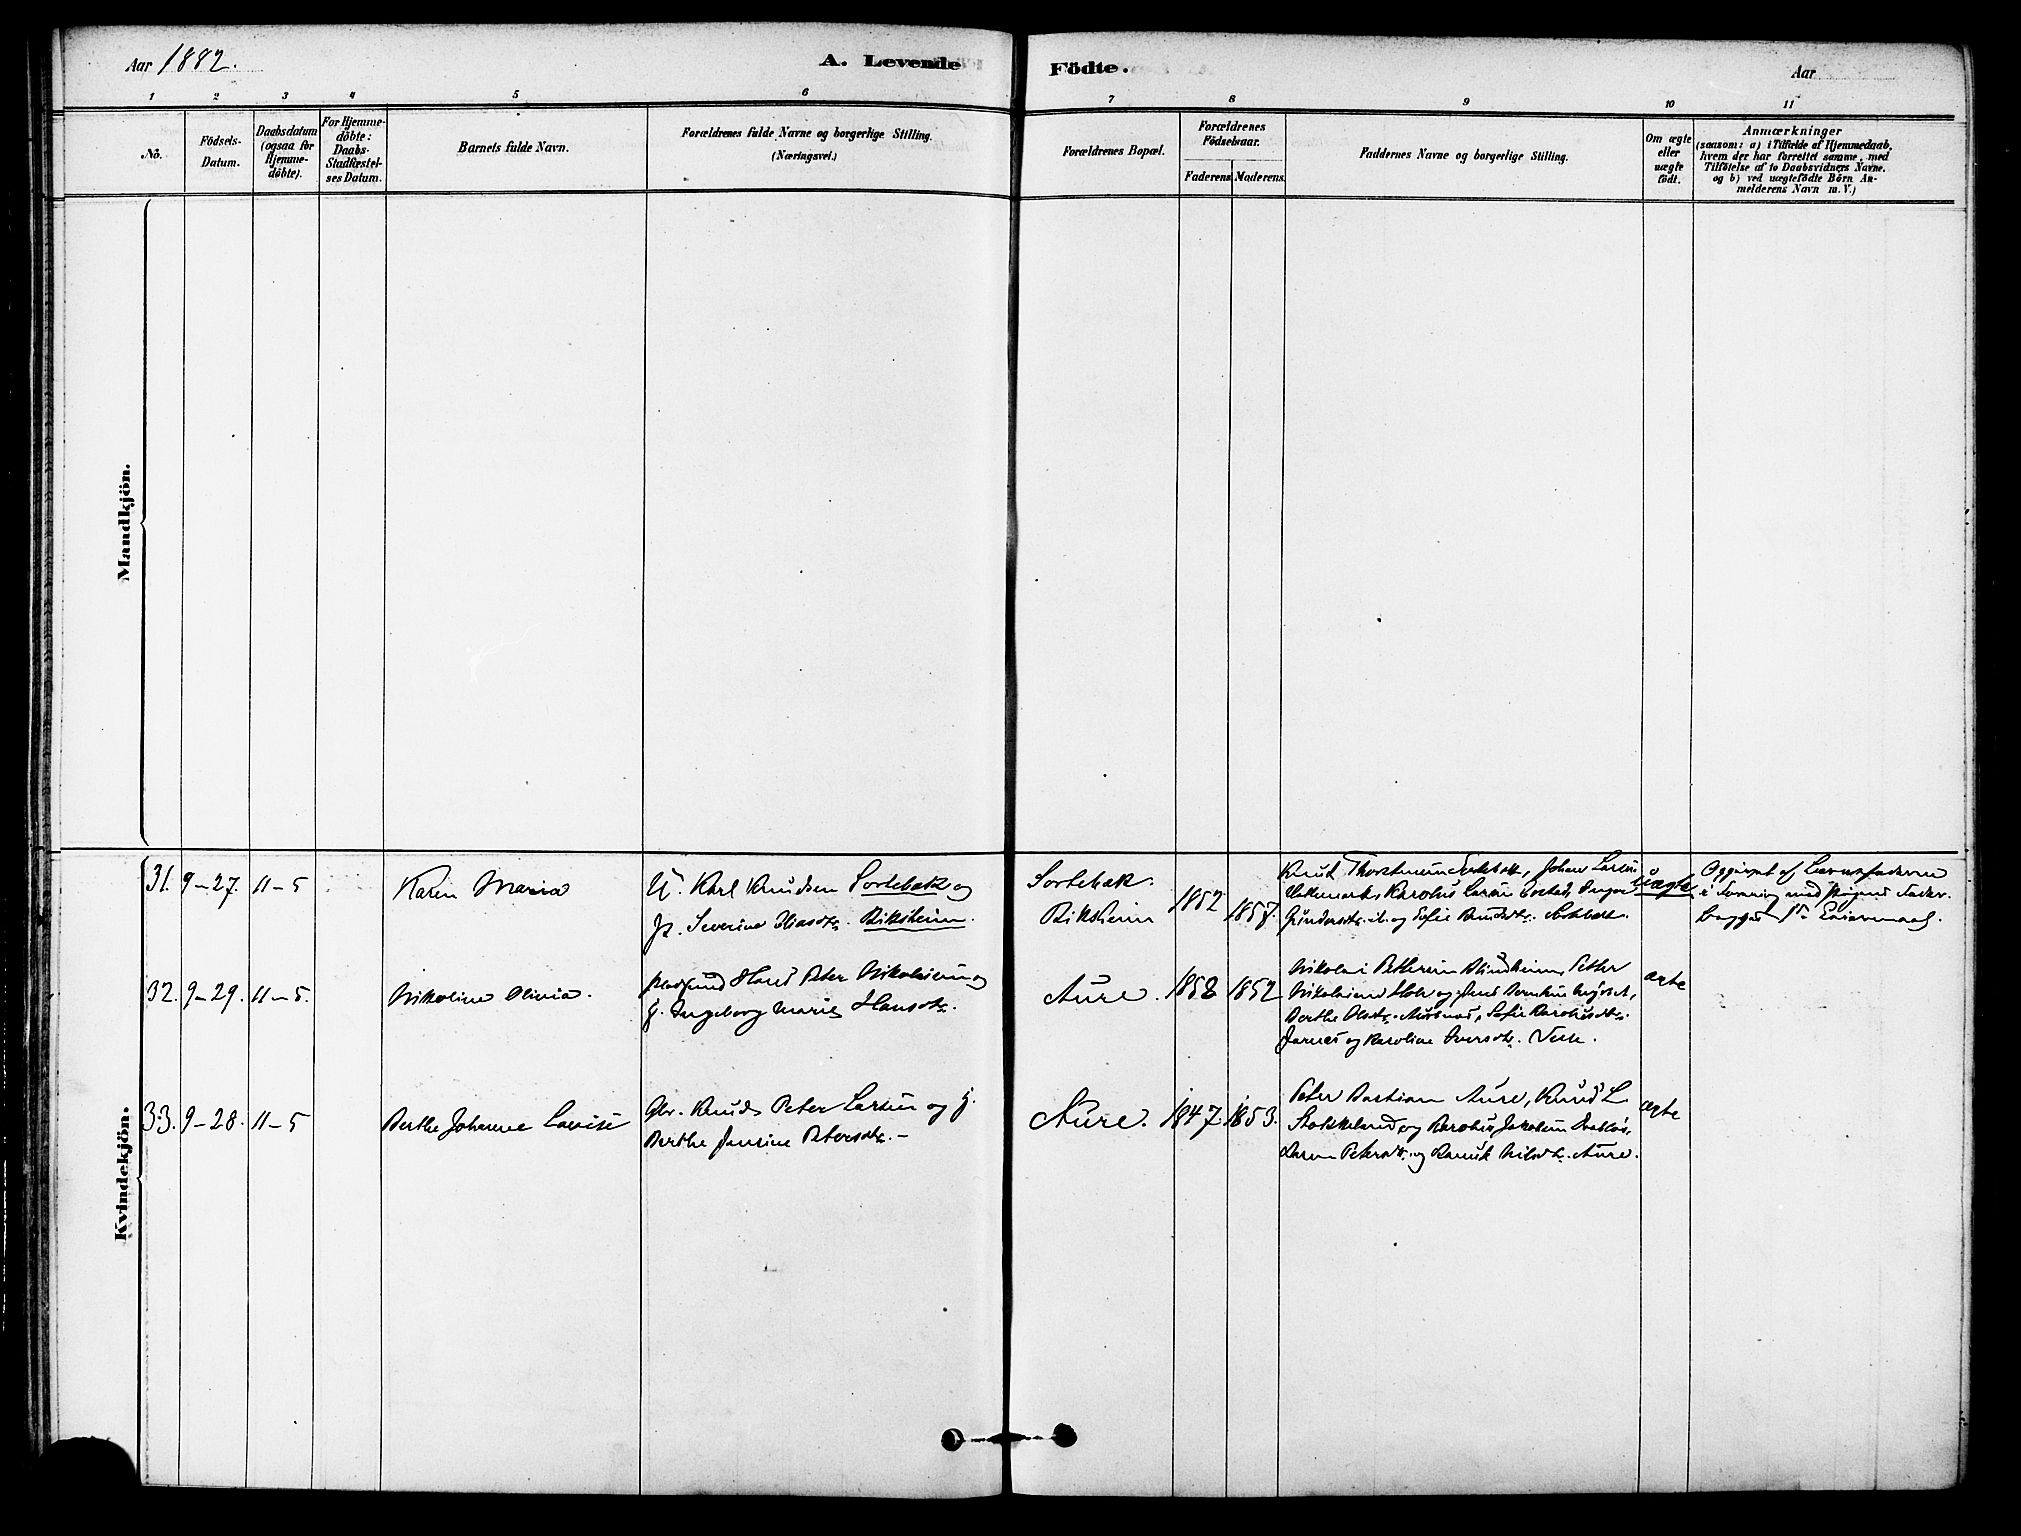 Aar 1882.
A. Levende Födte.
Aar
1 2 3 4 5 6 7 8 9 10 11
No.
Födsels-
Datum.
Daabsdatum
(ogsaa for
Hjemme-
döbte).
For Hjemme-
döbte:
Daabs-
Stadfæstel-
ses Datum.
Barnets fulde Navn.
Forældrenes fulde Navne og borgerlige Stilling.
(Næringsvei.)
Forældrenes Bopæl.
Forældrenes
Födselsaar.
Faderens Moderens.
Faddernes Navne og borgerlige Stilling.
Om ægte
eller
uægte
födt.
Anmærkninger
(saasom: a) i Tilfælde af Hjemmedaab,
hvem der har forrettet samme, med
Tilföielse af to Daabsvidners Navne,
og b) ved uægtefödte Börn An-
melderens Navn m. V.)
Mandkjön.
Kvindekjön.
31. 9-27. 11-5
Karen Maria
U. Karl Knudsen Sortebak og
Severine Eliasdtr. Riksheim.
Sortebak.
Riksheim
1852
1857.
Knut Johan Larsen
Karolus Larsen
og Sofie Knudsdtr.
uægte
Opgivet af Barnefaderen
32. 9-29. 11-5.
Nikoline Olivia.
Hans Peter Nikolaisen og
H. Ingeborg Marie Hansdtr.
Aure.
1858 1852
Nikolai Petersen Blindheim, Petter
Nikolaisen Hole og
Berthe Olsdtr. Sofie Karolusdtr.
og Karoline Iversdtr.
ægte
33. 9-28. 11-5
Berthe Johanne Lovise
Gbr. Knud Peter Larsen og H.
Berthe Jensine Petersdtr. -
Aure.
1847. 1853.
Peter Bastian Aure, Knud L.
Stokkeland og Karolus Jakobsen
Petersdtr. og Nilsdtr. Aure.
ægte